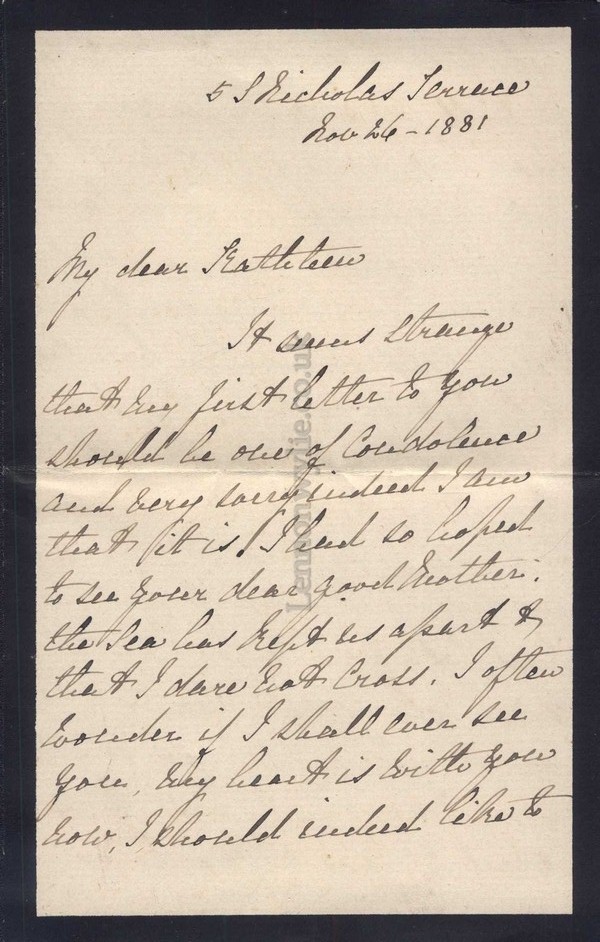 5 St Nicholas Terrace
Nov 26 - 1881
My dear Kathleen
It seems strange
that my first letter to you
should be one of Condolence
and very sorry indeed I am
that it is. I had so hoped
to see your dear good Mother.
the Sea has kept us apart &
that I dare not Cross. I often
wonder if I shall ever see
you, my heart is with you
now, I should indeed like to
Lennonwylie.co.uk